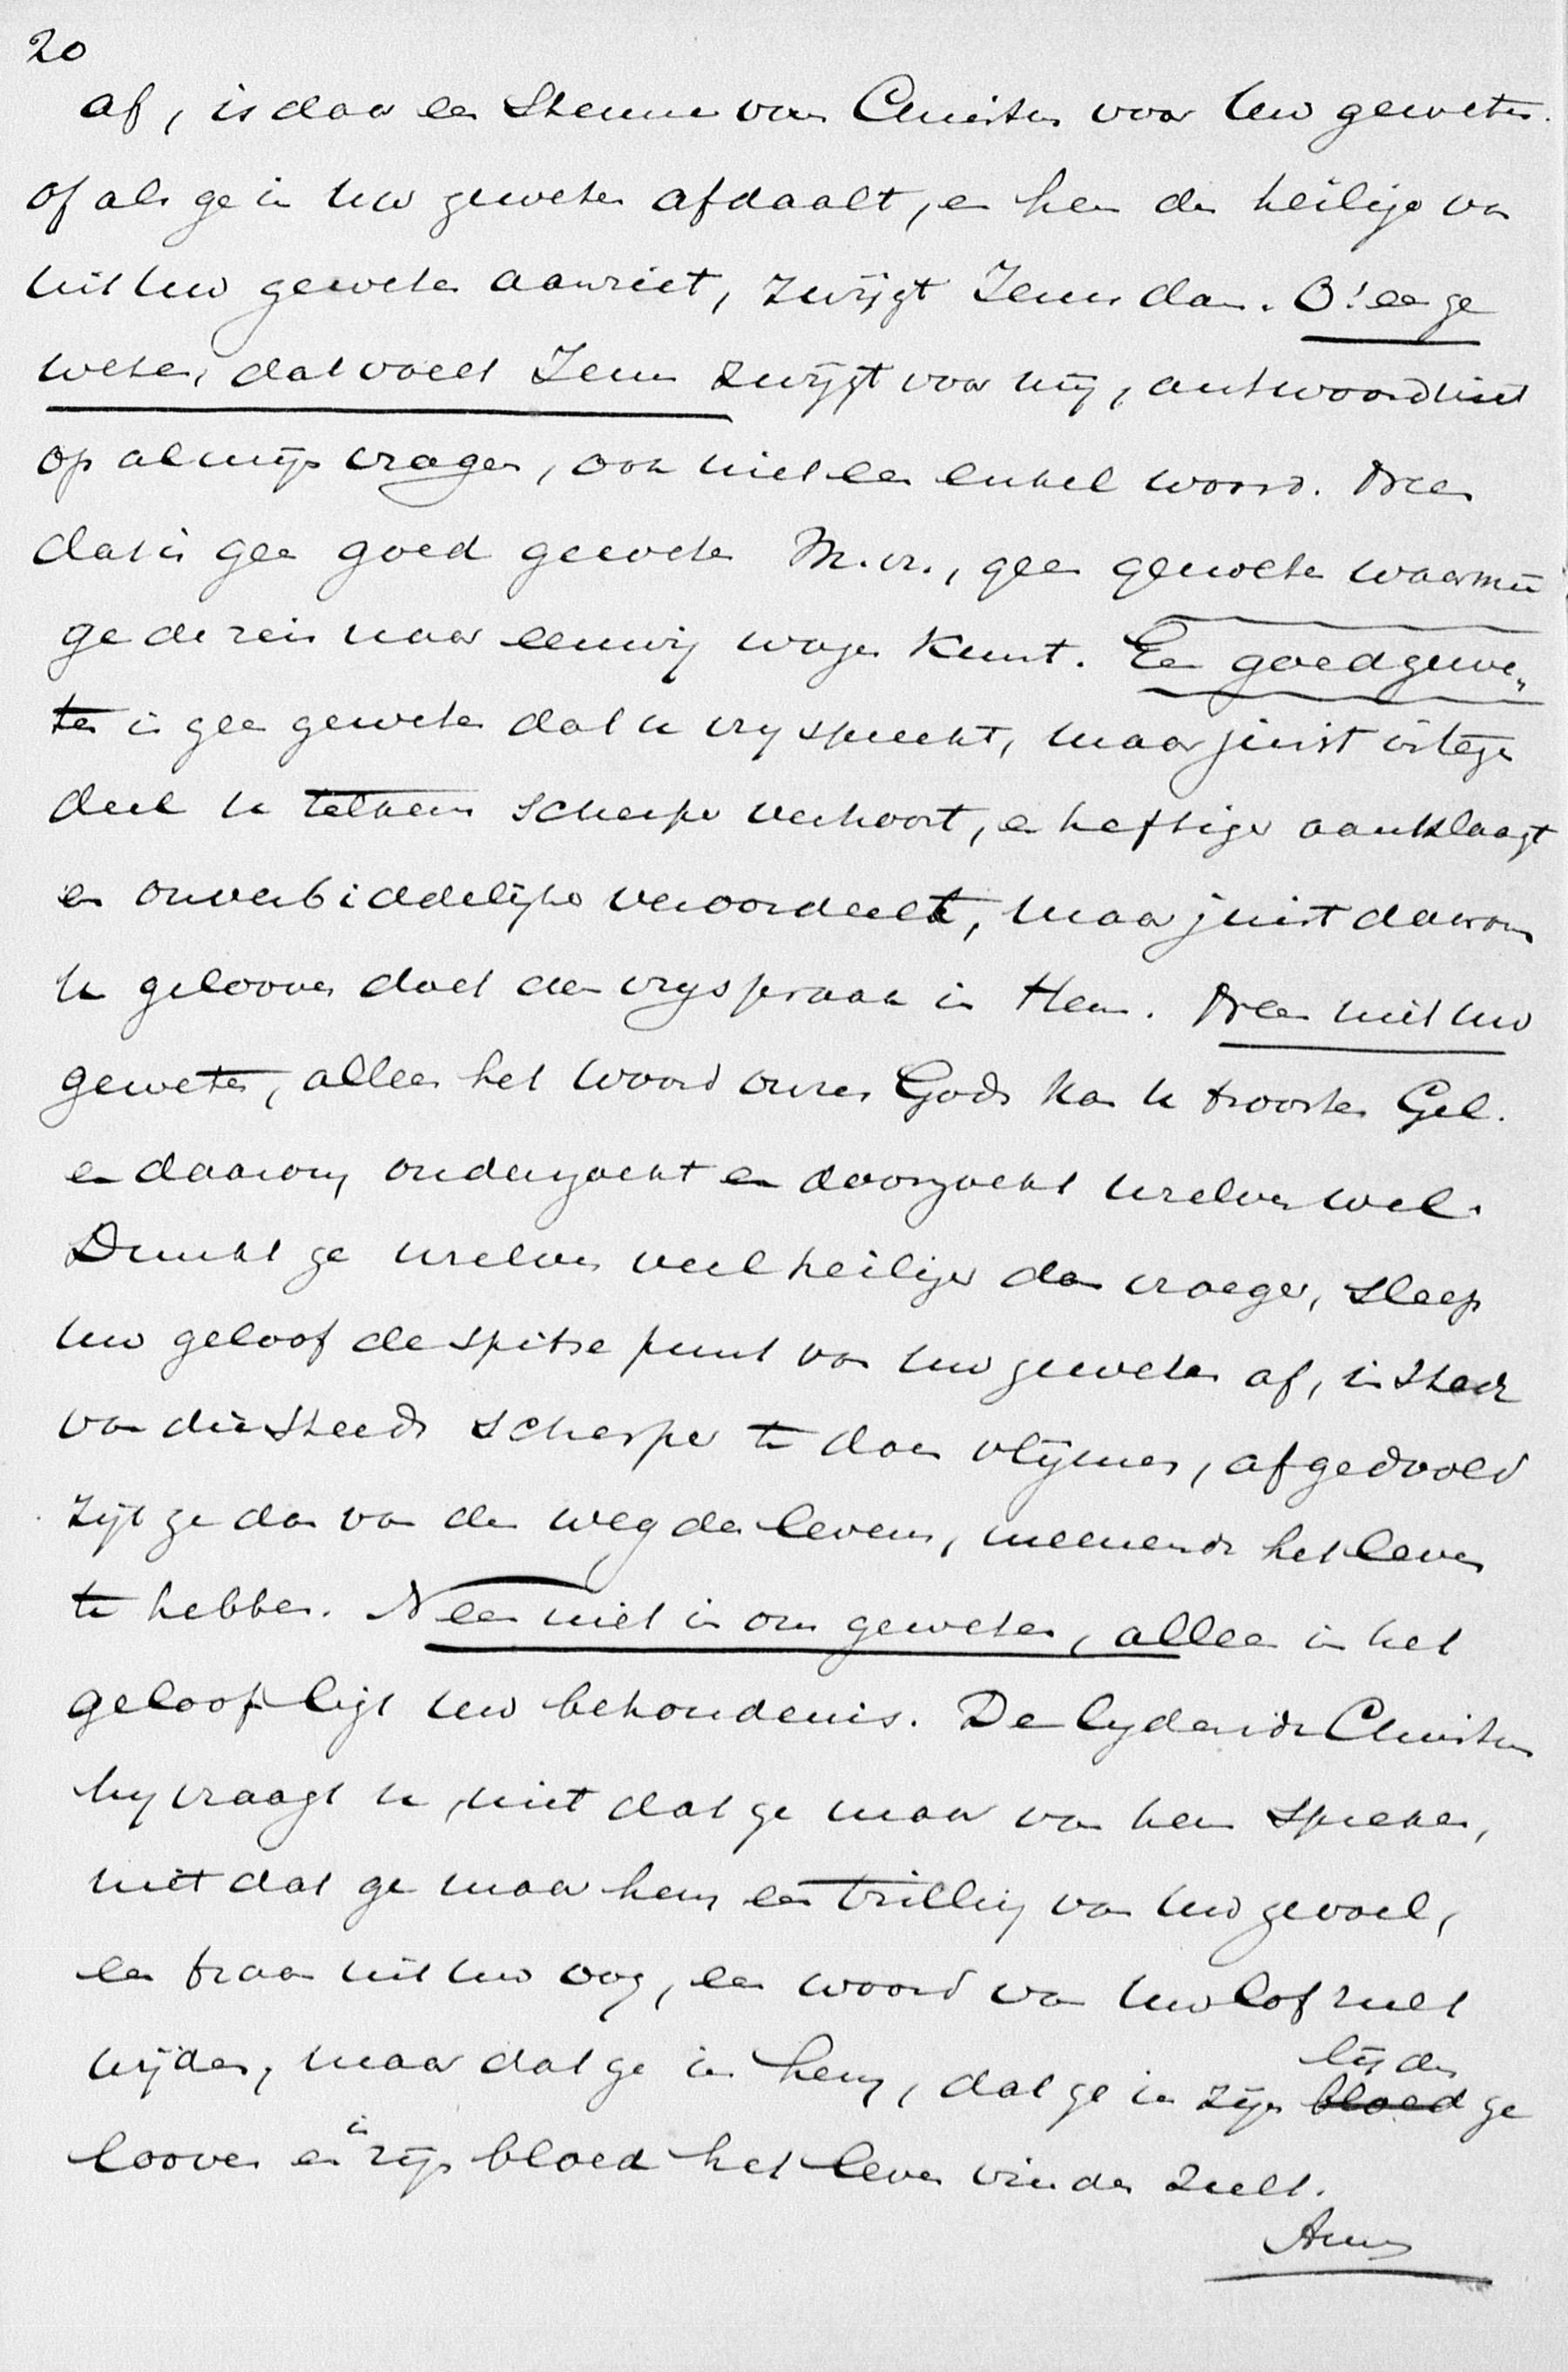 20
af, is daar een Stemme van Christus voor Uw geweten.
of als ge in Uw geweten afdaalt, en hem den heilige van
uit Uw geweten aanziet, zwijgt Jezus dan. O! een ge
weten, dat voelt Jezus zwijgt voor mij, antwoord niet
op al mijn vragen, ook niet een enkel woord. Neen
dat is geen goed geweten M. vr., geen geweten waarmeê
ge de reis naar eeuwig wagen kunt. Een goed gewe„
ten is geen geweten dat u vryspreekt, maar juist in tegen
deel u telkens scherper verhoort, en heftiger aanklaagt
en onverbiddelijker veroordeelt, maar juist daarom
u gelooven doet den vryspraak in Hem. Neen niet Uw
geweten, alleen het woord onzes Gods kan u troosten Gel.
en daarom, onderzoekt en doorzoekt uzelven wel.
Dunkt ge uzelven veel heiliger dan vroeger, sleep
Uw geloof de spitse punt van Uw geweten af, in stede
van die steeds scherper te doen vlijmen, afgedoold
zijt ge dan van den weg des levens, meenende het leven
te hebben. Neen niet in ons geweten, alleen in het
geloof ligt Uw behoudenis. De lydende Christus
hy vraagt u, niet dat ge maar van hem spreken,
niet dat ge maar hem een trilling van Uw gevoel,
een traan uit Uw oog, een woord van Uw lof zult
wijden, maar dat ge in hem, dat ge in zijn bloed lijden ge
looven en in zijn bloed het leven vinden zult.
Amen